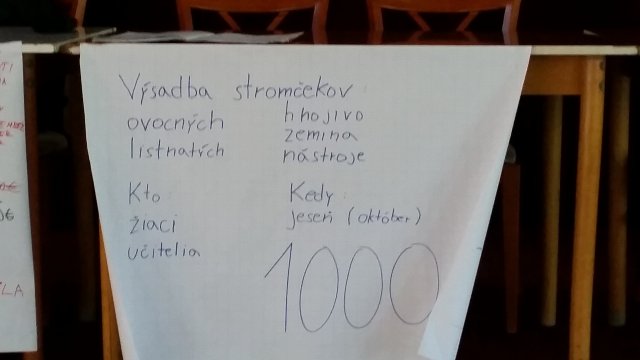 Výsadba stromčekov:
ovocných
listnatých
hnojivo
zemina
nástroje
Kto:
žiaci
učitelia
Kedy:
jeseň (október)
1000